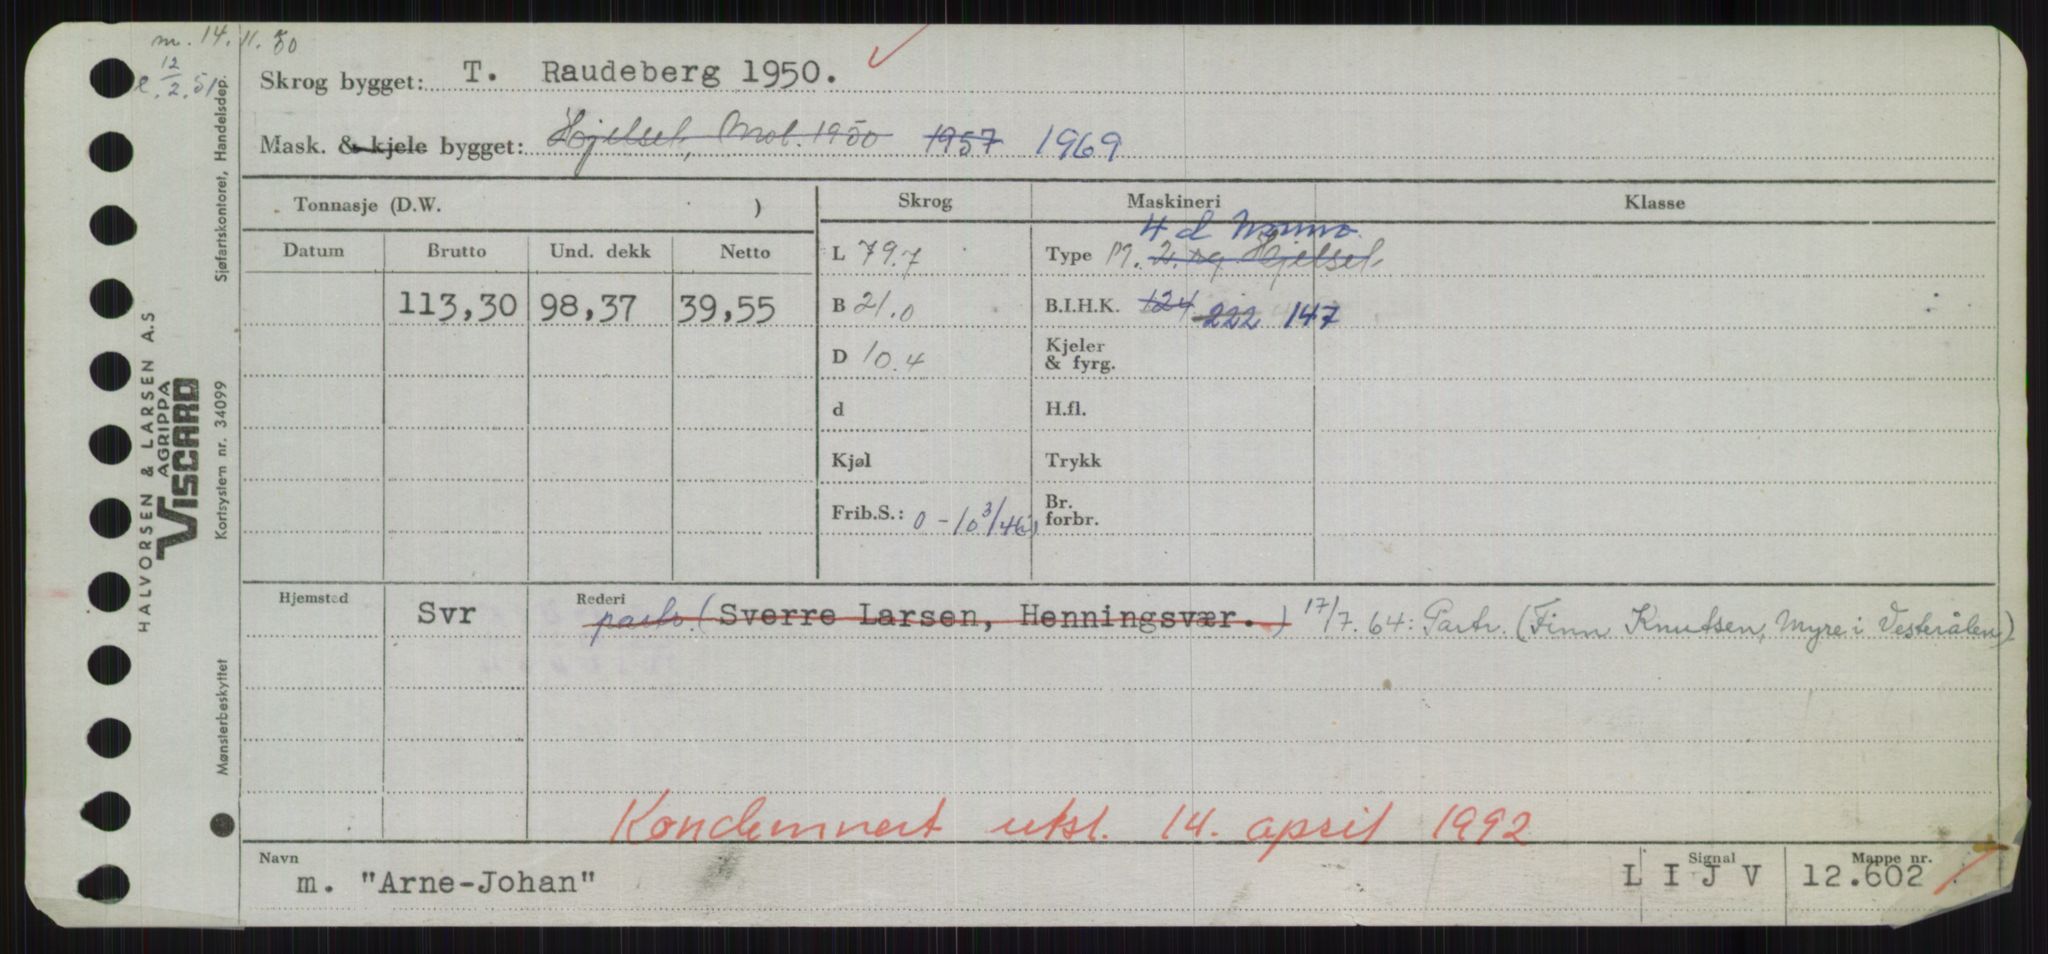 m. 14. 11. 50
12
2. 51
Skrog bygget: T. Raudeberg 1950.
Mask. & kjele bygget: Hjelset, Mol. 1950 1957 1969
Tonnasje (D.W. ) Skrog Maskineri Klasse
Datum Brutto Und. dekk Netto
113,30 98,37 39,55
L 79.7
B 21.0
D 10.4
d
Kjøl
Frib.S.: 0 - 10 3/4
4 d
Type M. 2 Hjelset
B.I.H.K. 124 222 147
Kjeler
& fyrg.
H.fl.
Trykk
Br.
forbr.
Hjemsted Rederi
Svr partr. (Sverre Larsen, Henningsvær.) 17/7.64: Partr. (Finn Knutsen, Myre i Vesterålen)
Kondemnert utsl. 14. april 1992
Navn Signal Mappe nr.
m. "Arne-Johan" L I J V 12.602
HALVORSEN & LARSEN A.S
AGRIPPA
VISCARD
Mønsterbeskyttet Kortsystem nr. 34099 Sjøfartskontoret, Handelsdep.